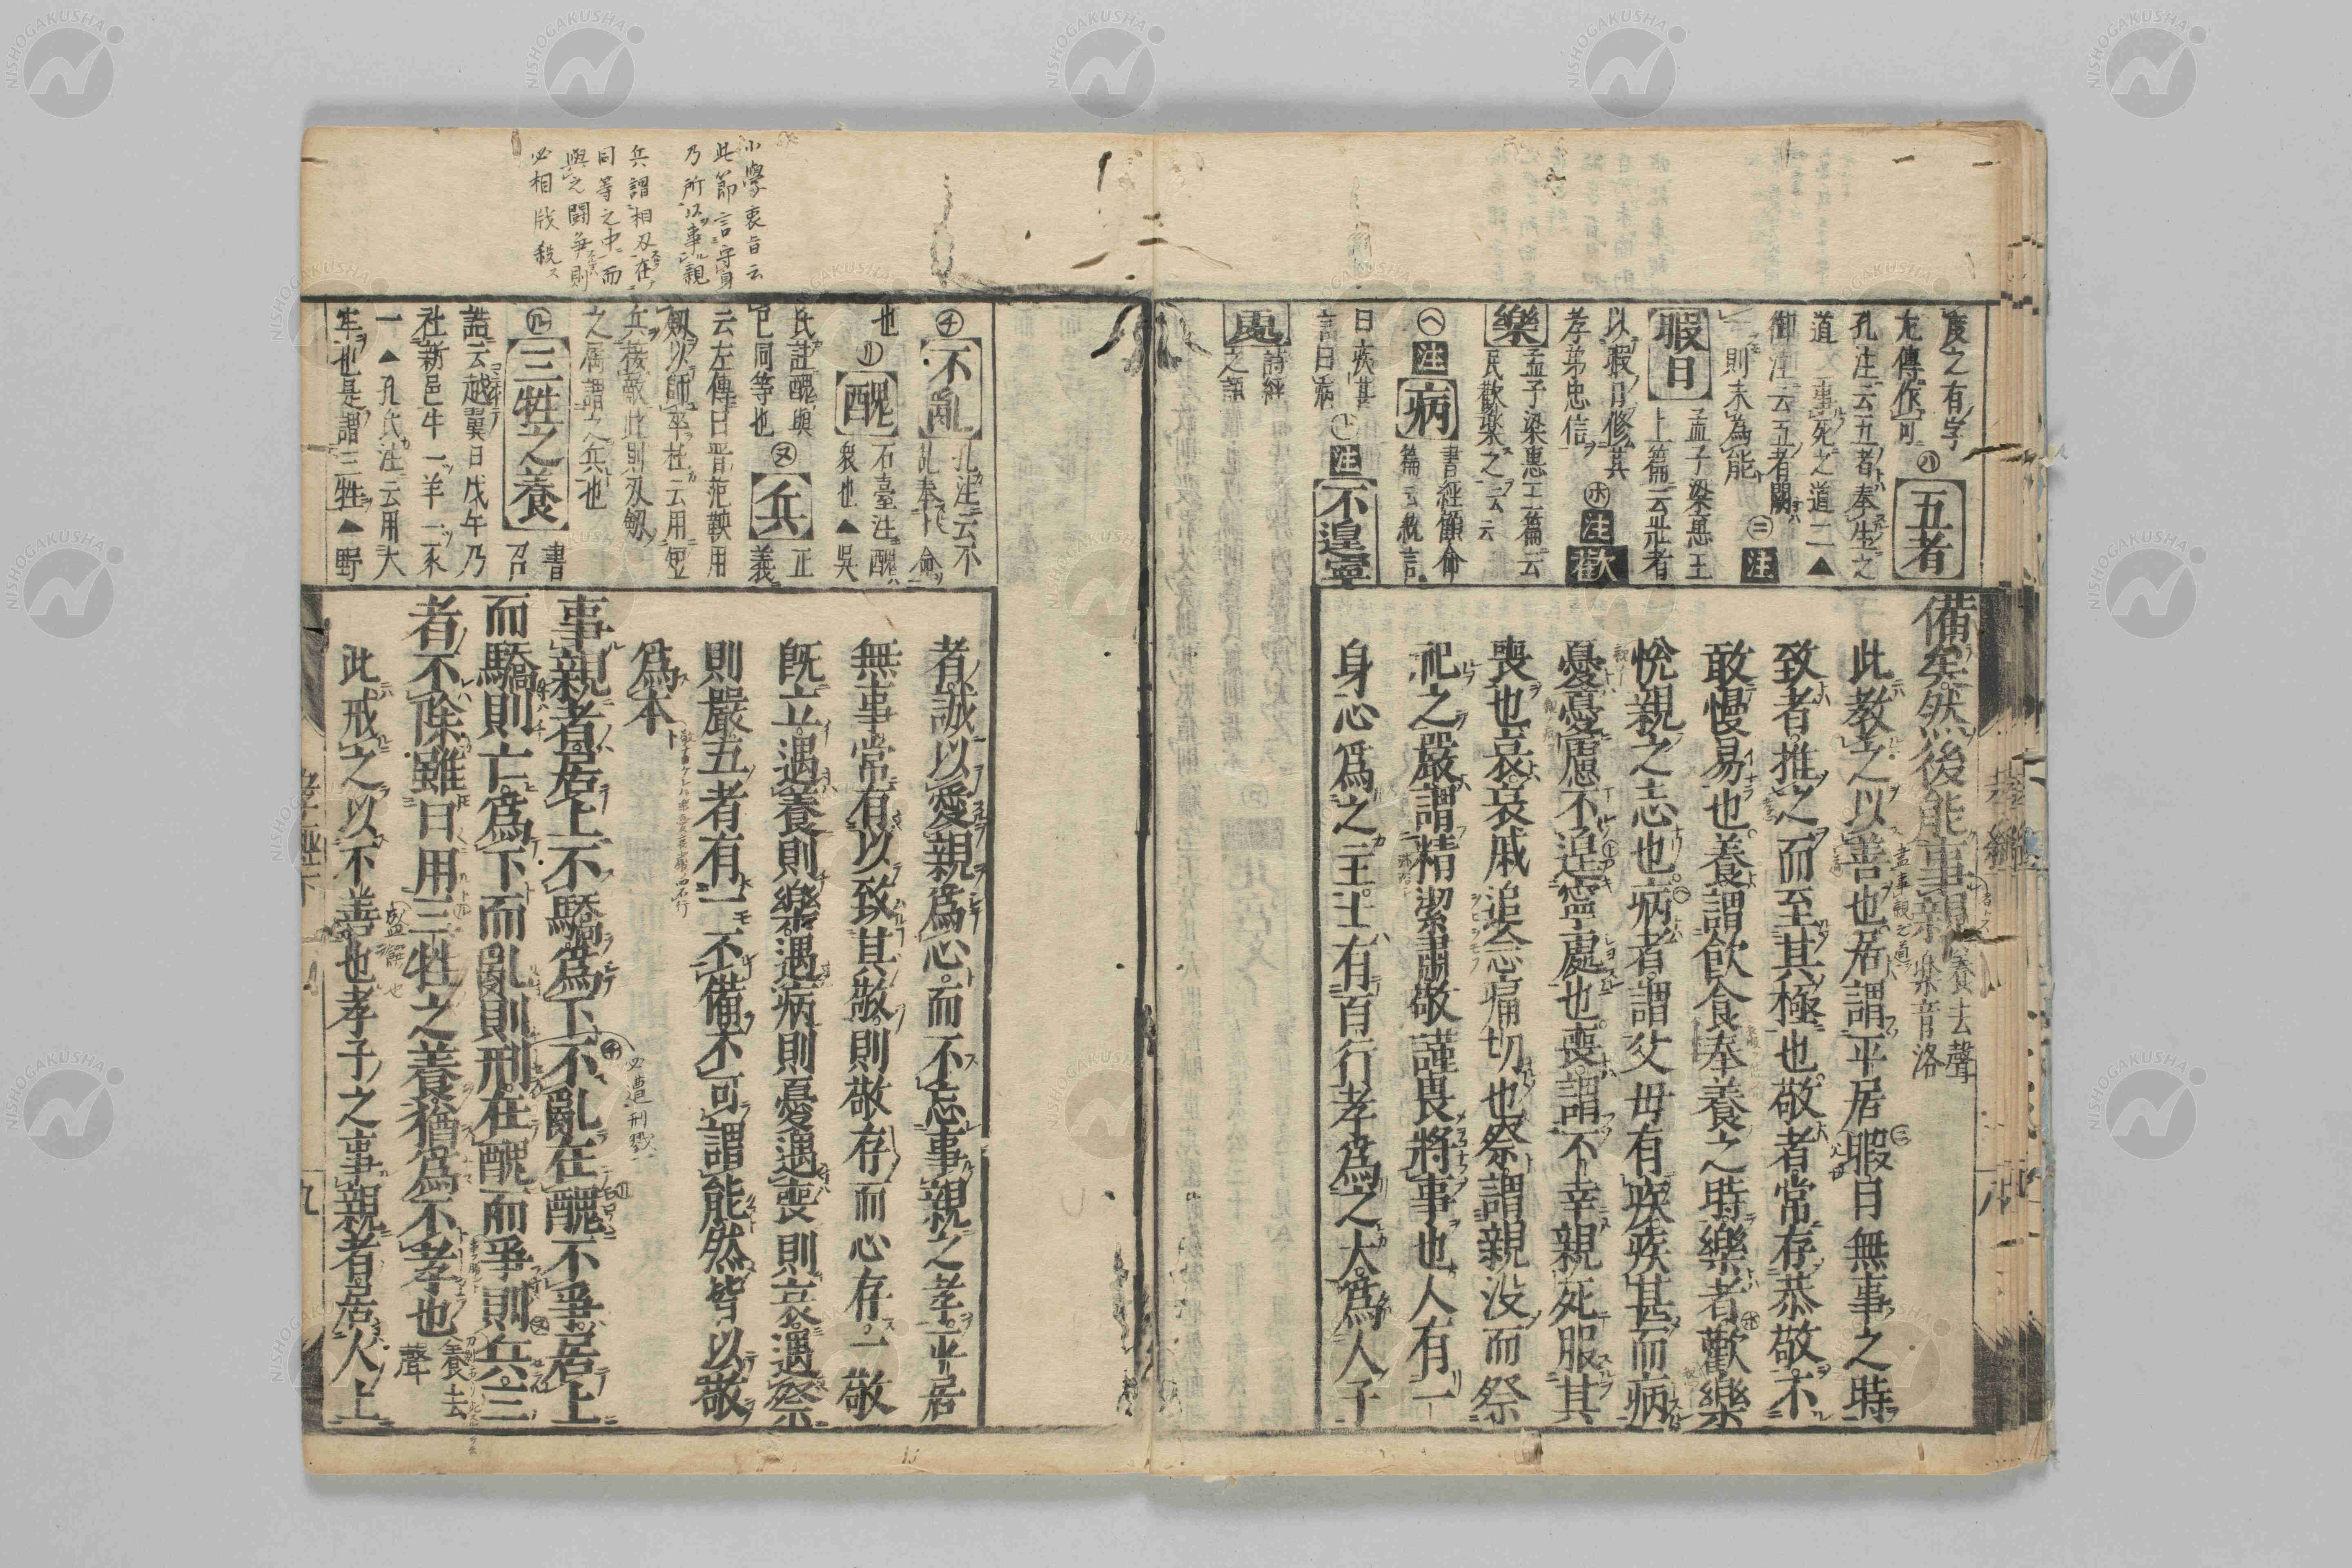 度之有字
左傳作可 ㋩ 五者
孔注云五者奉生之
道 事死之道二▲
御注云五者闕
則未為能 ㊁ 注
暇日 孟子梁惠王
上篇云壯者
以暇日修其
孝弟忠信 ㋭ 注 歡
樂 孟子梁惠王篇云
民歡樂之云云
㋬ 注 病 書經顧命
篇云統言
曰疾甚
言曰病 ㋣ 注 不遑寧
處 詩經
之語
備矣然後能事親 養去聲
樂音洛
此教之以善也居謂平居暇日無事之時
致者推之而至其極也敬者常存恭敬不
敢慢易也養謂飲食奉養之時樂者歡樂
悅親之志也病者謂父母有疾疾甚而病
憂憂慮不遑寧處也喪謂不幸親死服其
喪也哀哀戚追念痛切也祭謂親没而祭
祀之嚴謂精潔肅敬謹畏將事也人有一
身心爲之主士有百行孝爲之大爲人子
小學衷旨云
此節言守身
乃所以事親
兵謂相刃在
同等之中而
與之鬪爭則
必相戕殺
㋠ 不亂 孔注云不
亂奉上命
也 ㋷ 醜 石臺注醜
衆也▲吳
氏註醜與
已同等也 ㋦ 兵 正
義
云左傳曰晋范鞅用
劔以帥卒杜云用短
兵接敵此則刃劔
之屬謂之兵也
㋸ 三牲之養 書
召
誥云越翼日戊午乃
社新邑牛一羊一豕
一▲孔氏注云用大
牢也是謂三牲▲野
者誠以愛親爲心而不忘事親之孝平居
無事常有以致其敬則敬存而心存一敬
旣立遇養則樂遇病則憂遇喪則哀遇祭
則嚴五者有一不備不可謂能然皆以敬
爲本
事親者居上不驕爲下不亂在醜不爭居上
必遭刑戮
而驕則亡爲下而亂則刑在醜而爭則兵三
者不除雖日用三牲之養猶爲不孝也 養去
聲
此戒之以不善也孝子之事親者居人上
孝經
八
九
NISHOGAKUSHA